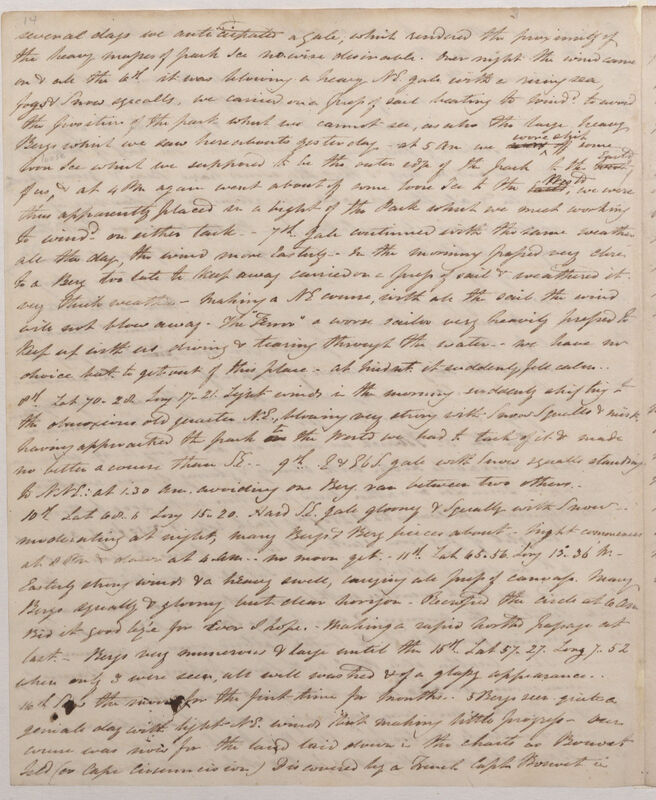 14
several days we anticipated a gale, which rendered the proximity of
the heavy masses of pack Ice no wise desirable. Over night the wind came
on & all the 6th it was blowing a heavy NE gale with a rising sea
fogs & Snow squalls, we carried on a press of sail beating to wind? to avoid
the position of the pack which we cannot see, as also the large heavy
Bergs which we saw hereabouts yesterday - at 5 Am we wore ship off some
loose Ice which we supposed to be the outer edge of the pack to the
of us, & at 4 PM again went about off some loose Ice to the we were
thus apparently placed in a bight of the Pack which we meet working
to wind? on either tack - 7th. Gale continued with the same weather
all the day, the wind more Easterly - In the morning passed very close
to a Berg too late to keep away carried on a press of sail & weathered it
very thick weather - making a NE course, with all the sail the wind
will not blow away - The "Terror" a worse sailor very heavily pressed to
keep up with us diving & tearing through the water - we have no
choice but to get out of this place - at Midnt. it suddenly fell calm ..
8th Lat 70-28 Long 17-21. Light winds in the morning suddenly shifting to
the obnoxious old quarter N.E., blowing very strong with Snow Squalls & mist
having approached the pack to the West we had to tack off it & made
no better a course than S.E. - 9th. E & EbS. gale with Snow squalls standing
to N.N.E: at 1.30 Am. avoiding one Berg ran between two others ..
10th Lat 68.4 Long 15-20. Hard S.E. gale gloomy & Squally with Snow ..
moderating at night, many Bergs & Berg pieces about - Night commences
at 8 PM & at 4 AM - no moon yet - 11th. Lat 65-56 Long 13-36 W-
Easterly strong winds & a heavy swell, carrying all press of canvass. Many
Bergs squally & gloomy but clear horizon - Recrossed the circle at 6 Am
Bid it good bye for Ever I hope. - Making a rapid north? passage at
last - Bergs very numerous & large until the 15th. Lat 57.27. Long 7.52
when only 3 were seen, all well washed & of a glassy appearance ..
16th Saw the moon for the first time for months .. 5 Bergs seen quite a
genial day with light NE. winds but making little progress - Our
course was now for the land laid down in the charts as Bouvet
Isld (or Cape Circumcision) Discovered by a French Captn Bouvet in